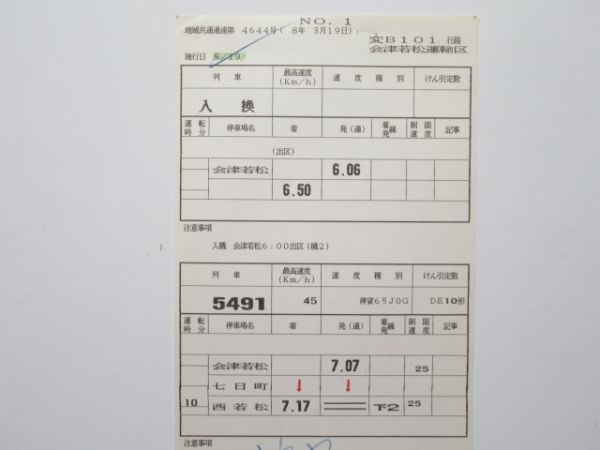 NO. 1
地域共通通達第 4644号( 8年 3月19日)
変B101 行路
会津若松運輸区
施行日 8./19
列 車 最高速度(Km/h) 速 度 種 別 けん引定数
入 換
運転時分 停車場名 着 発(通) 着発線 制限速度 記事
(出区)
会津若松 6.06
6.50
注意事項
入機 会津若松6:00出区(機2)
列 車 最高速度(Km/h) 速 度 種 別 けん引定数
5491 45 停貨65J0G DE10形
運転時分 停車場名 着 発(通) 着発線 制限速度 記事
会津若松 7.07 25
七日町 ↓ ↓
10 西若松 7.17 下2 25
注意事項